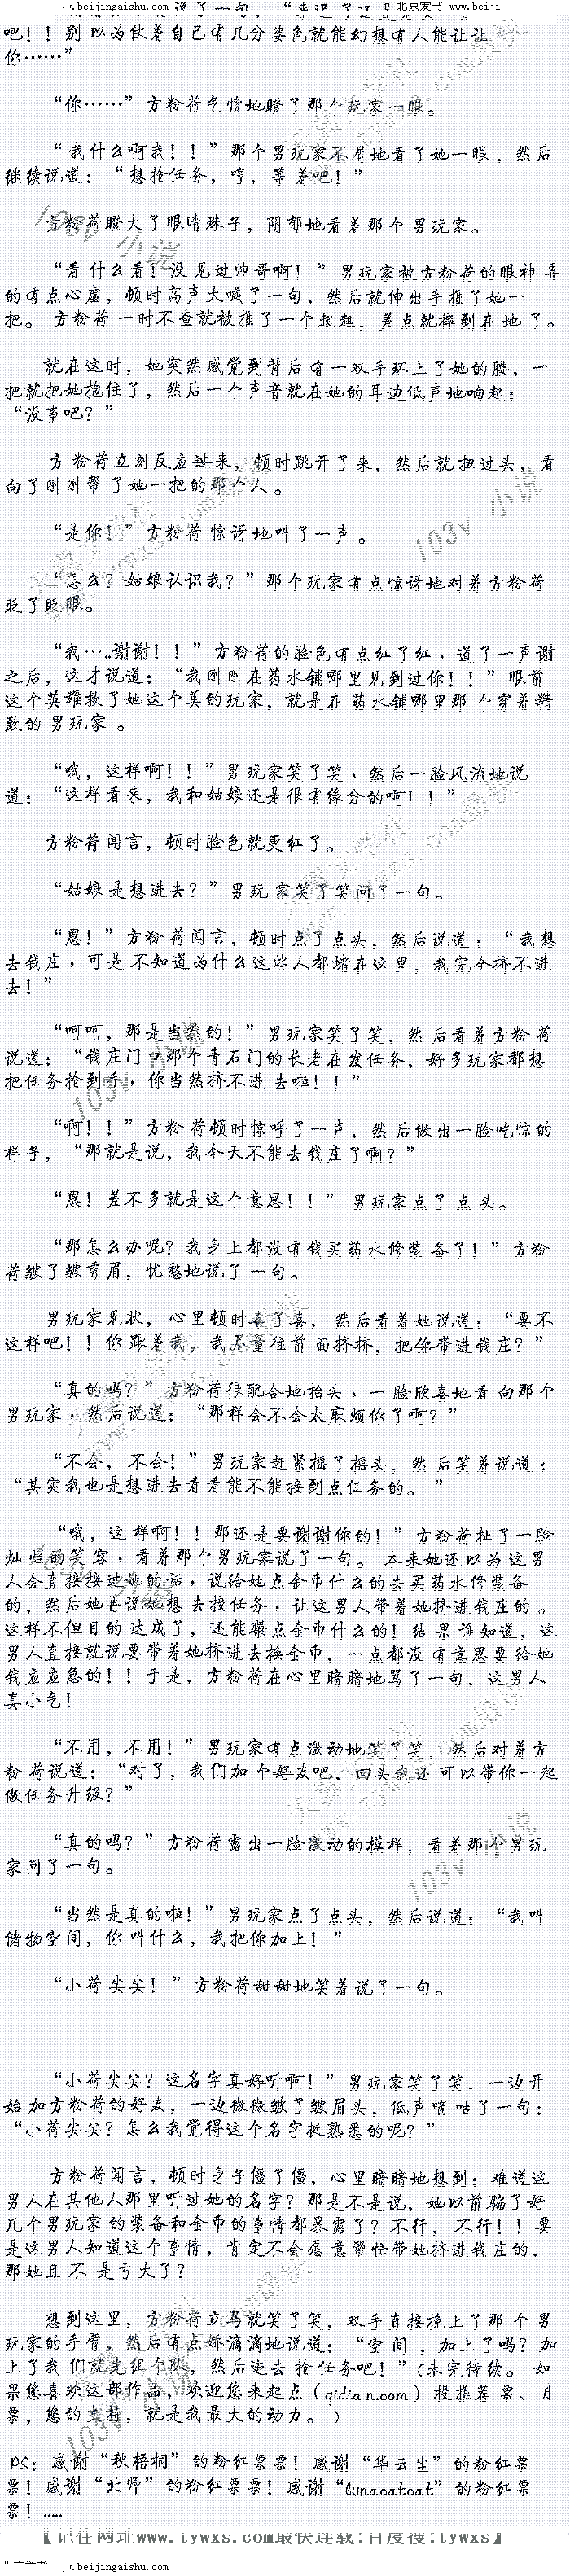 .beijingaishu.com
说了一句，“
北京爱书 www.beiji
吧！！别以为仗着自己有几分姿色就能幻想有人能让让
你……”
“你……”方粉荷气愤地瞪了那个玩家一眼。
“我什么啊我！！”那个男玩家不屑地看了她一眼，然后
继续说道：“想抢任务，哼，等着吧！”
方粉荷瞪大了眼睛珠子，阴郁地看着那个男玩家。
“看什么看！没见过帅哥啊！”男玩家被方粉荷的眼神弄
的有点心虚，顿时高声大喊了一句，然后就伸出手推了她一
把。方粉荷一时不查就被推了一个趔趄，差点就摔到在地了。
就在这时，她突然感觉到背后有一双手环上了她的腰，一
把就把她抱住了，然后一个声音就在她的耳边低声地响起：
“没事吧？”
方粉荷立刻反应过来，顿时跳开了来，然后就扭过头，看
向了刚刚帮了她一把的那个人。
“是你！”方粉荷惊讶地叫了一声。
“怎么？姑娘认识我？”那个玩家有点惊讶地对着方粉荷
眨了眨眼。
“我…..谢谢！！”方粉荷的脸色有点红了红，道了一声谢
之后，这才说道：“我刚刚在药水铺哪里见到过你！！”眼前
这个英雄救了她这个美的玩家，就是在药水铺哪里那个穿着精
致的男玩家。
“哦，这样啊！！”男玩家笑了笑，然后一脸风流地说
道：“这样看来，我和姑娘还是很有缘分的啊！！”
方粉荷闻言，顿时脸色就更红了。
“姑娘是想进去？”男玩家笑了笑问了一句。
“恩！”方粉荷闻言，顿时点了点头，然后说道：“我想
去钱庄，可是不知道为什么这些人都堵在这里，我完全挤不进
去！”
“呵呵，那是当然的！”男玩家笑了笑，然后看着方粉荷
说道：“钱庄门口那个青石门的长老在发任务，好多玩家都想
把任务抢到手，你当然挤不进去啦！！”
“啊！！”方粉荷顿时惊呼了一声，然后做出一脸吃惊的
样子，“那就是说，我今天不能去钱庄了啊？”
“恩！差不多就是这个意思！！”男玩家点了点头。
“那怎么办呢？我身上都没有钱买药水修装备了！”方粉
荷皱了皱秀眉，忧愁地说了一句。
男玩家见状，心里顿时喜了喜，然后看着她说道：“要不
这样吧！！你跟着我，我尽量往前面挤挤，把你带进钱庄？”
“真的吗？”方粉荷很配合地抬头，一脸欣喜地看向那个
男玩家，然后说道：“那样会不会太麻烦你了啊？”
“不会，不会！”男玩家赶紧摇了摇头，然后笑着说道：
“其实我也是想进去看看能不能接到点任务的。”
“哦，这样啊！！那还是要谢谢你的！”方粉荷扯了一脸
灿烂的笑容，看着那个男玩家说了一句。本来她还以为这男
人会直接接过她的话，说给她点金币什么的去买药水修装备
的，然后她再说她想去接任务，让这男人带着她挤进钱庄的。
这样不但目的达成了，还能赚点金币什么的！结果谁知道，这
男人直接就说要带着她挤进去换金币，一点都没有意思要给她
钱应应急的！！于是，方粉荷在心里暗暗地骂了一句，这男人
真小气！
“不用，不用！”男玩家有点激动地笑了笑，然后对着方
粉荷说道：“对了，我们加个好友吧，回头我还可以带你一起
做任务升级？”
“真的吗？”方粉荷露出一脸激动的模样，看着那个男玩
家问了一句。
“当然是真的啦！”男玩家点了点头，然后说道：“我叫
储物空间，你叫什么，我把你加上！”
“小荷尖尖！”方粉荷甜甜地笑着说了一句。
“小荷尖尖？这名字真好听啊！”男玩家笑了笑，一边开
始加方粉荷的好友，一边微微皱了皱眉头，低声嘀咕了一句：
“小荷尖尖？怎么我觉得这个名字挺熟悉的呢？”
方粉荷闻言，顿时身子僵了僵，心里暗暗地想到：难道这
男人在其他人那里听过她的名字？那是不是说，她以前骗了好
几个男玩家的装备和金币的事情都暴露了？不行，不行！！要
是这男人知道这个事情，肯定不会愿意帮忙带她挤进钱庄的，
那她且不是亏大了？
想到这里，方粉荷立马就笑了笑，双手直接挽上了那个男
玩家的手臂，然后有点娇滴滴地说道：“空间，加上了吗？加
上了我们就先组个队，然后进去抢任务吧！”(未完待续。如
果您喜欢这部作品，欢迎您来起点（qidian.com）投推荐票、月
票，您的支持，就是我最大的动力。）
PS：感谢“秋梧桐”的粉红票票！感谢“华云尘”的粉红票
票！感谢“北师”的粉红票票！感谢“lunacatcat”的粉红票
票！.....
【记住网址www.tywxs.com最快连载:百度搜:tywxs】
.beijingaishu.com